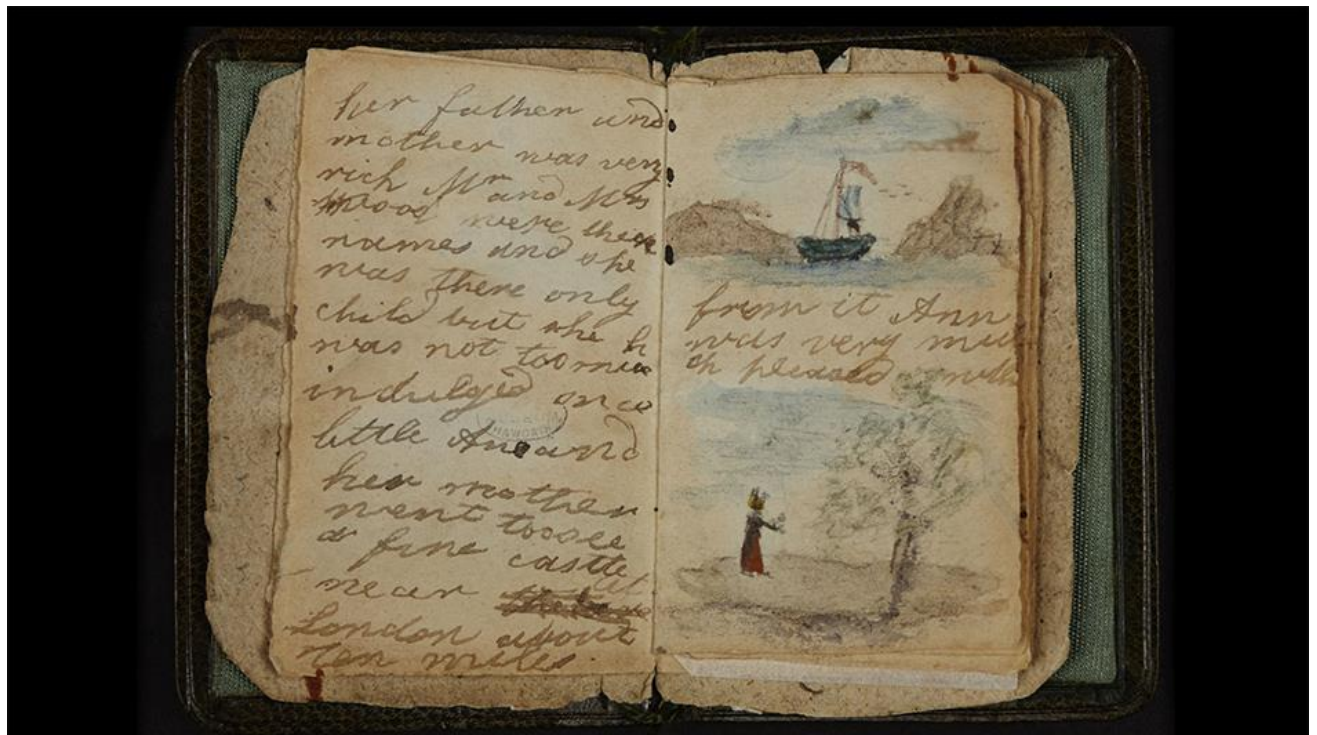 her father and
mother was very
rich Mr and Mrs
Wood were their
names and she
was there only
child but she h
was not too muc
indulged once
little Ane and
her mother
went too see
a fine castle
near
London about
ten miles.
from it Ann
was very mu
ch pleased with
HAWORTH